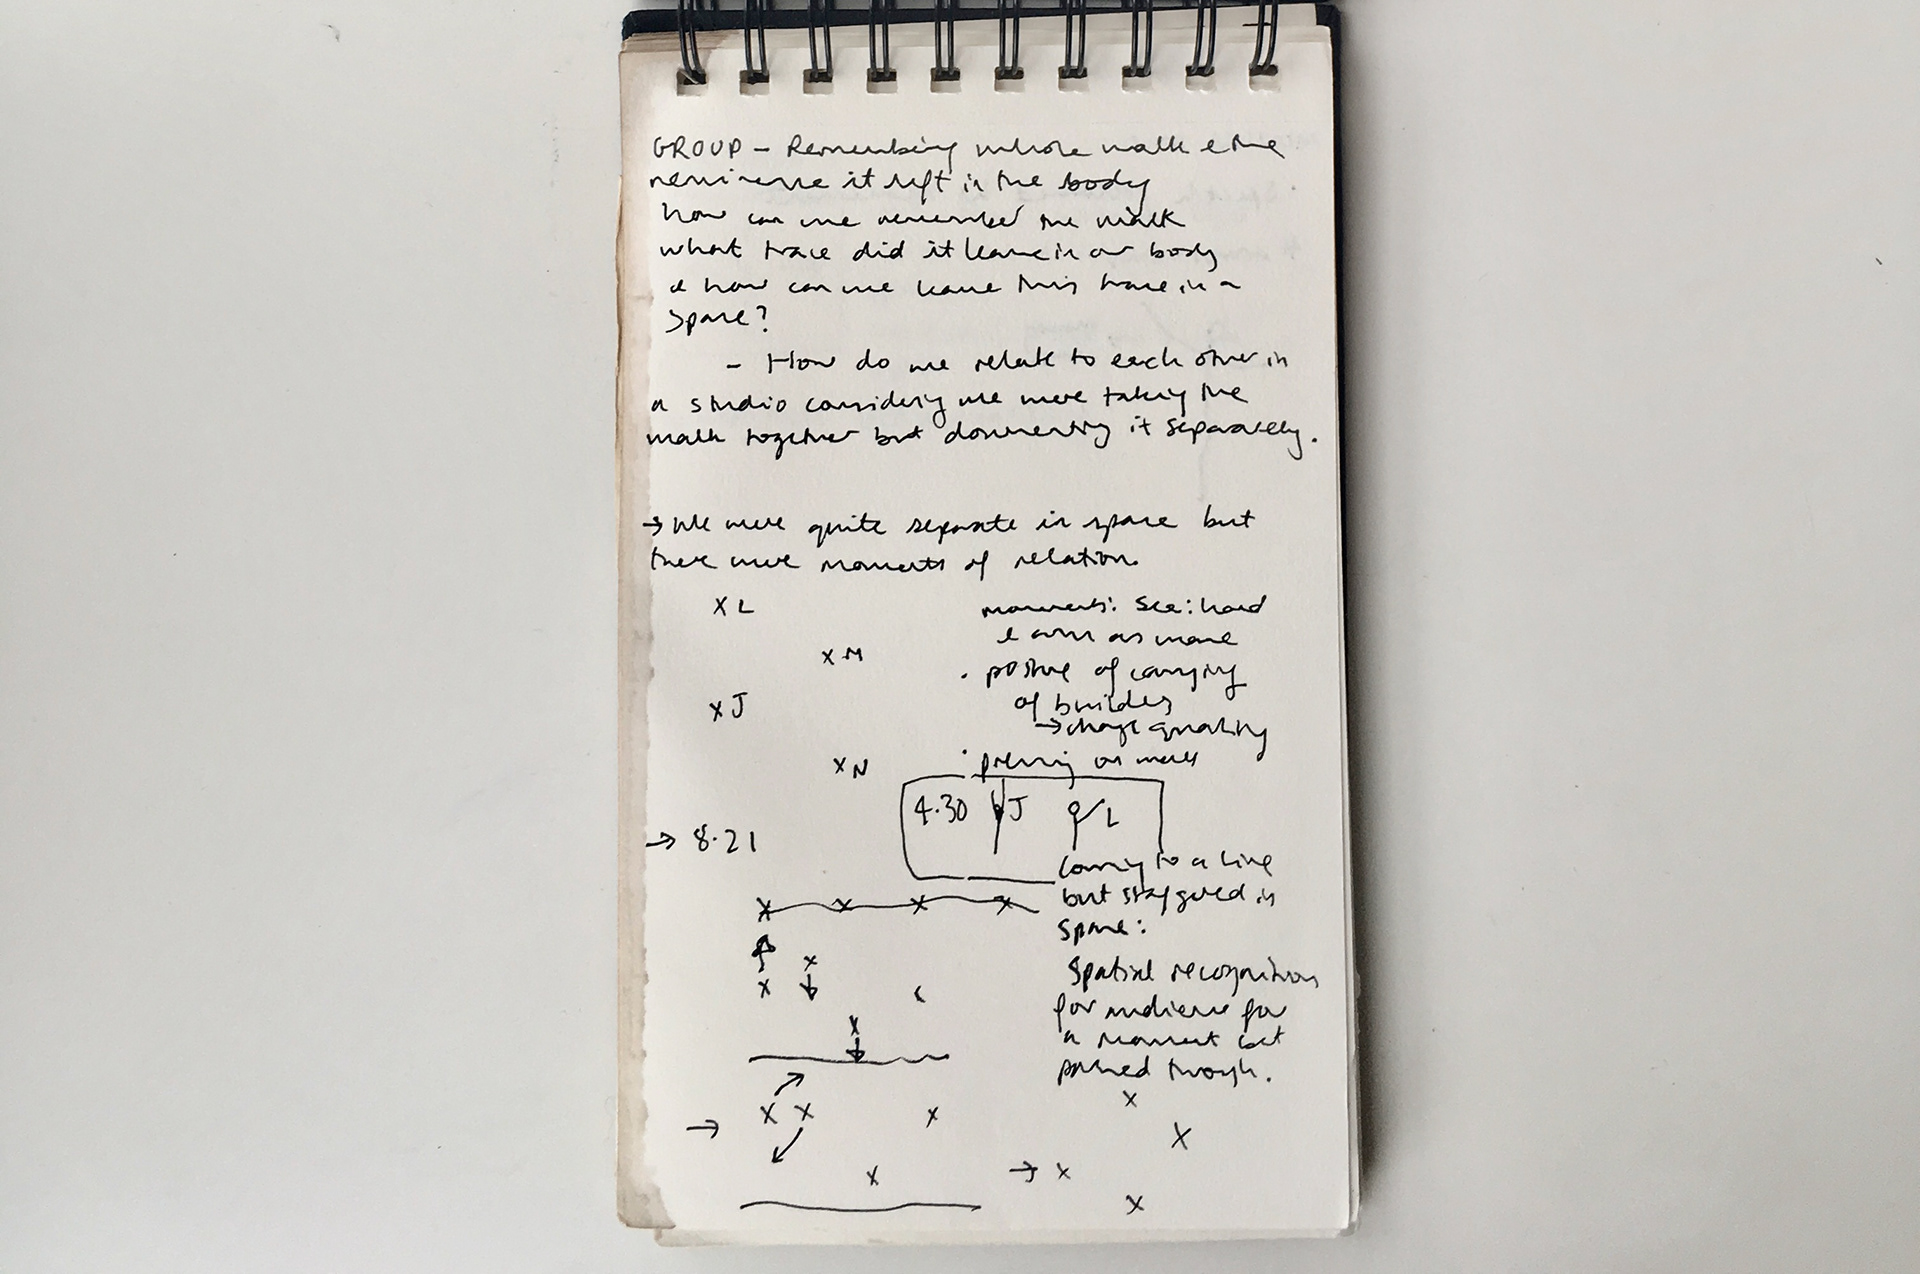 GROUP - Remembering whole walk & the
it left in the body
how can we remember the walk
what trace did it leave in our body
& how can we leave this trace in a
space?
- How do we relate to each other in
a studio considering we were taking the
walk together but documenting it separately.
→ We were quite separate in space but
there were moments of relation.
x L
x M
x J
x N
moments: see: hand
& arm as move
· posture of carrying
of builders
→ change quality
· pressing on walls
4.30 J L
→ 8.21
coming to a line
but stay in
space:
Spatial recognition
for audience for
a moment but
pushed through.
x x x x
x
x
x
x x x
x
x
x
→ x
x